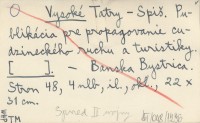 O Vysoké Tatry - Spiš. Pu-
blikácia pre propagovanie cu-
dzineckého ruchu a turistiky.
[ ]. - Banska Bystrica.
Stron 48, 4 nlb, il., okł., 22 ×
31 cm.
Sprzed II wojny
JM